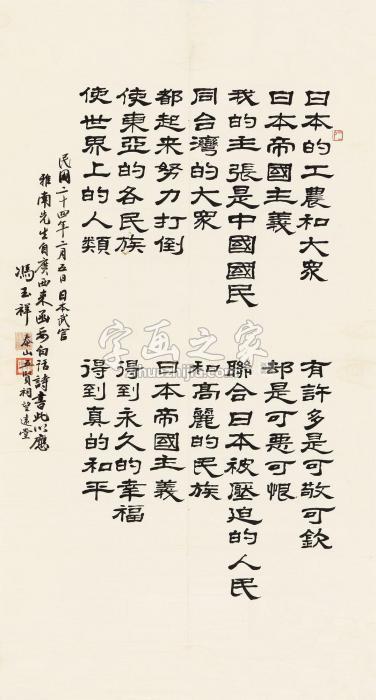 日本的工農和大衆 有許多是可敬可欽
日本帝國主義 却是可惡可恨
我的主張是中國國民 聯合日本被壓迫的人民
同台灣的大衆 和高麗的民族
都起来努力打倒 日本帝國主義
使東亞的各民族 得到永久的幸福
使世界上的人類 得到真的和平
民國二十四年二月五日 日本武官
雅南先生自廣西来函索白話詩書此以應
馮玉祥 泰山五賢祠望遠堂
字画之家